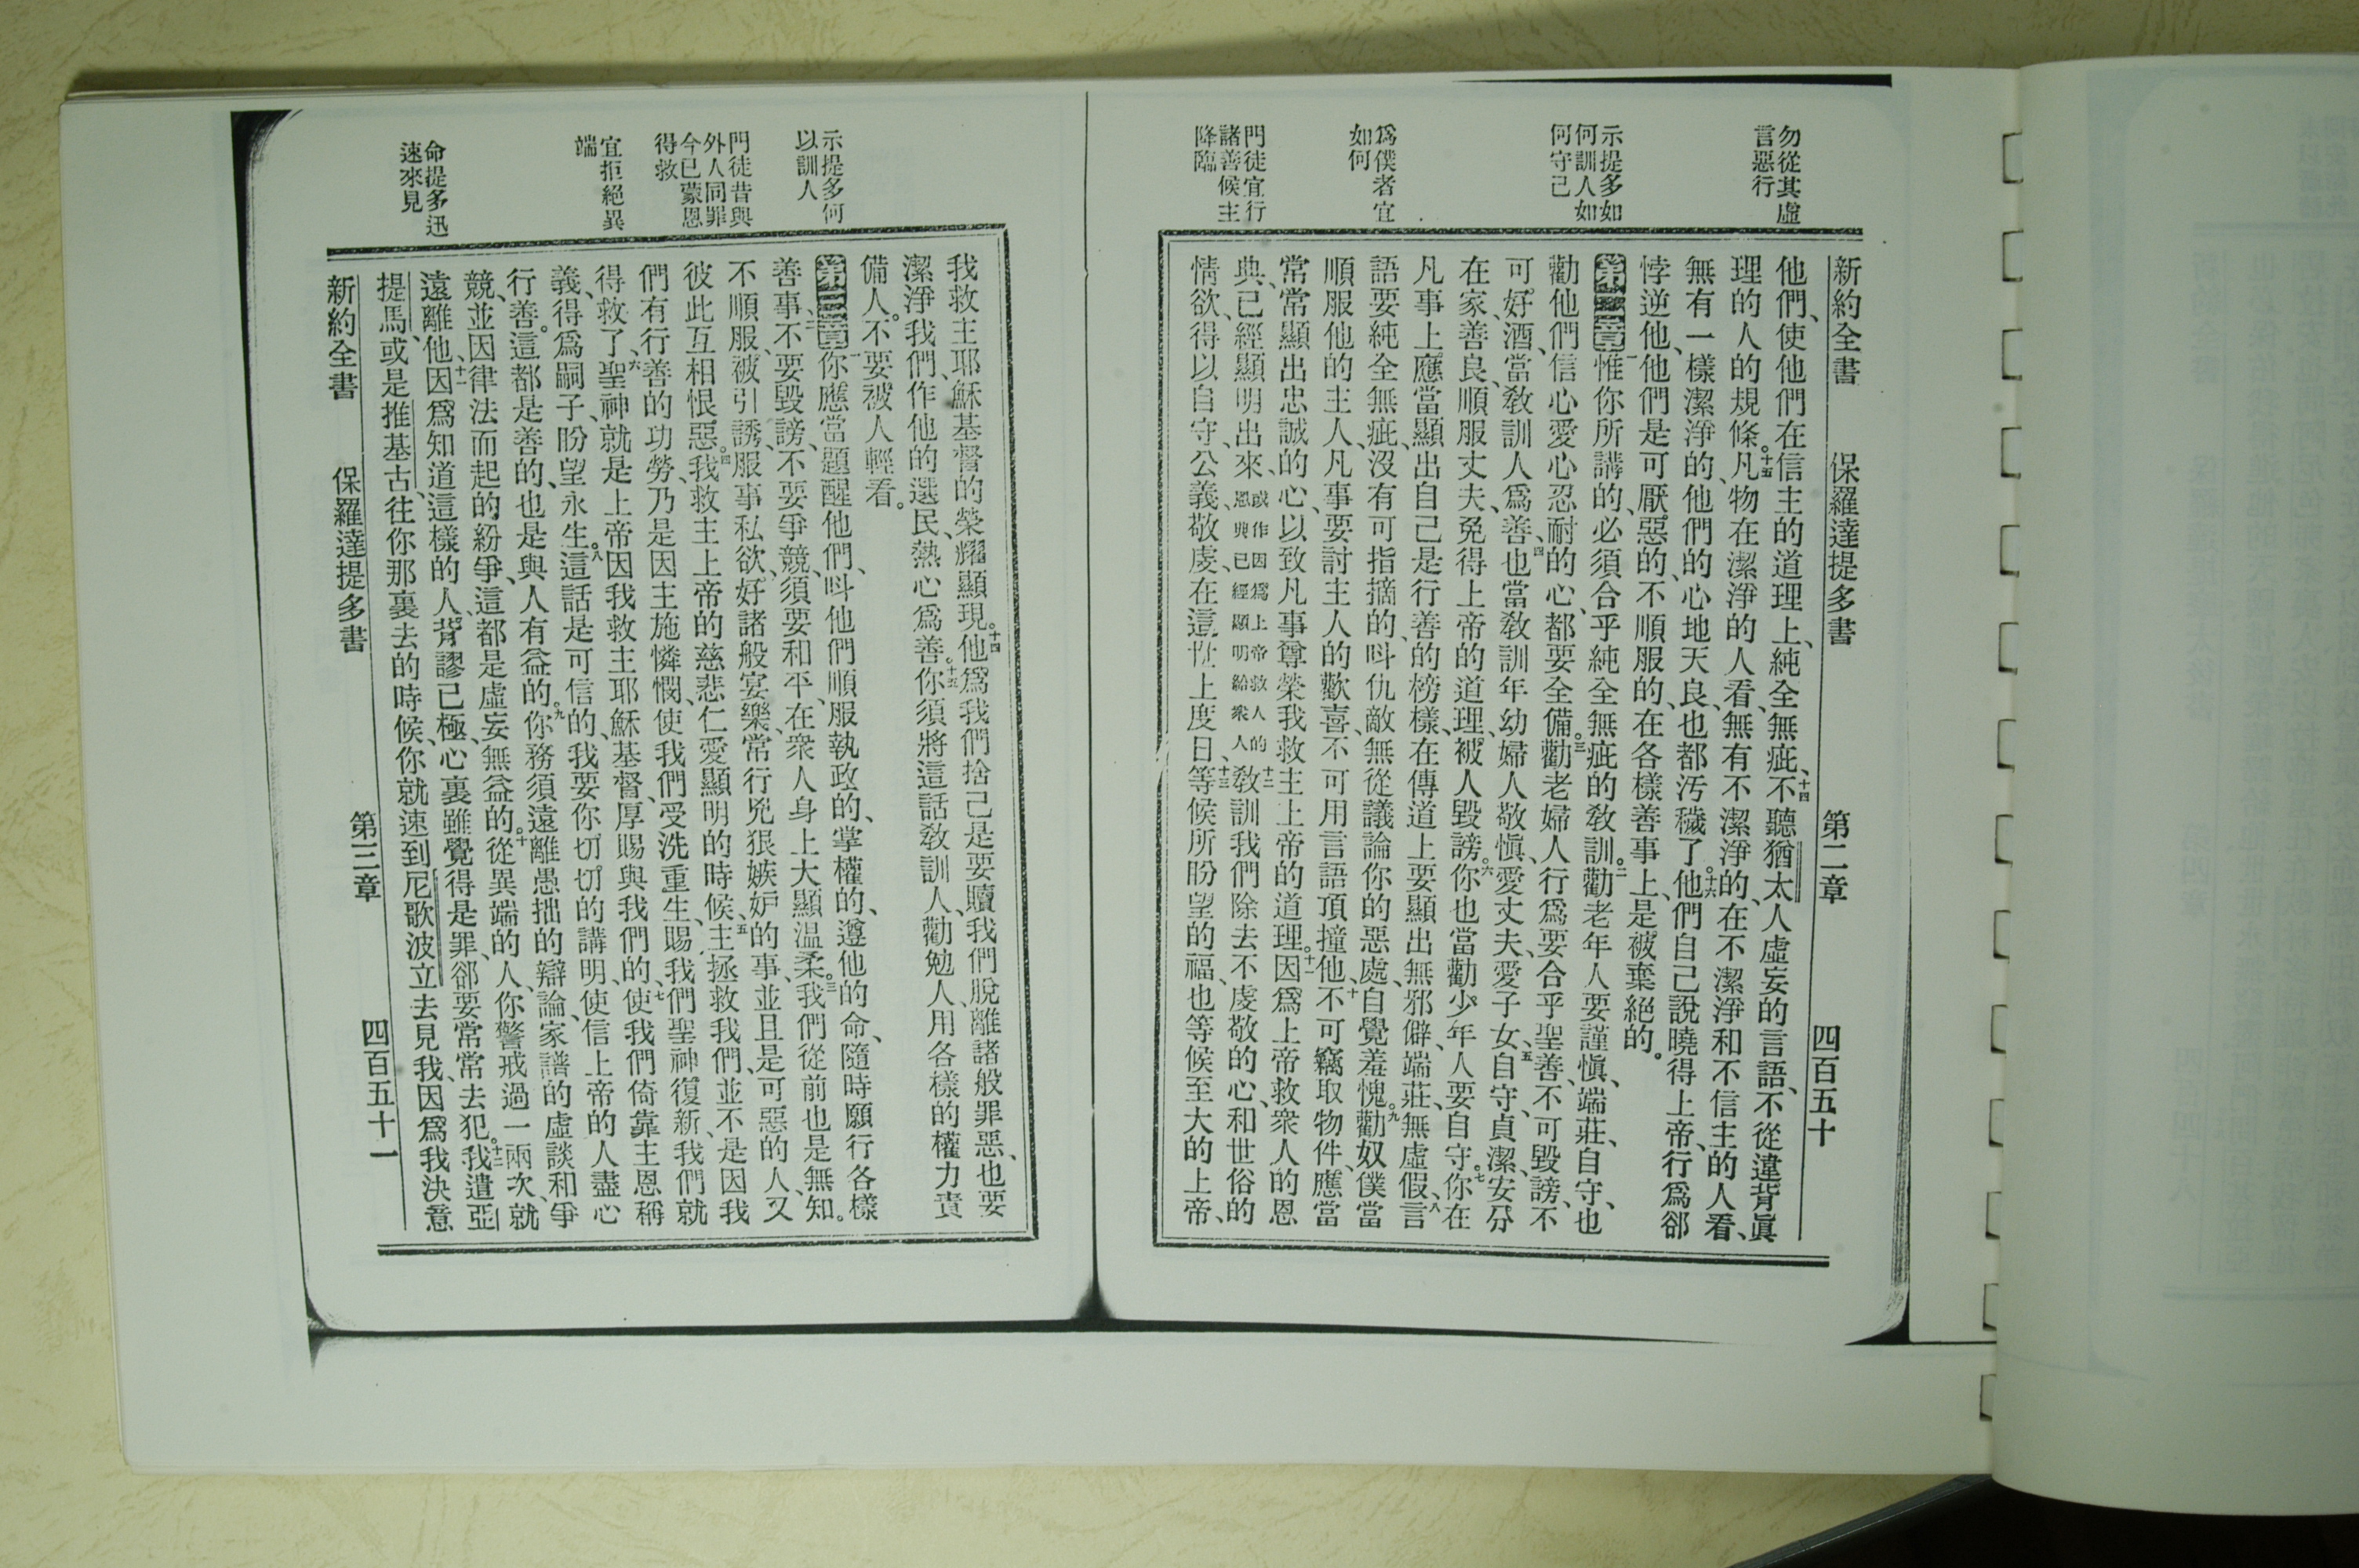 勿從其虛
言惡行
示提多如
何訓人如
何守己
爲僕者宜
如何
門徒宜行
諸善候主
降臨
新約全書 保羅達提多書 第二章 四百五十
他們、使他們在信主的道理上、純全無疵、十四不聽猶太人虛妄的言語、不從違背眞
理的人的規條。十五凡物在潔淨的人看、無有不潔淨的、在不潔淨和不信主的人看、
無有一樣潔淨的、他們的心地天良、也都汚穢了。十六他們自己說曉得上帝、行爲卻
悖逆他、他們是可厭惡的、不順服的、在各樣善事上、是被棄絕的。
第二章 一惟你所講的、必須合乎純全無疵的敎訓。二勸老年人要謹愼、端莊、自守、也
勸他們信心愛心忍耐的心、都要全備。三勸老婦人行爲要合乎聖善、不可毀謗、不
可好酒、當敎訓人爲善、四也當敎訓年幼婦人敬愼、愛丈夫、愛子女、五自守、貞潔、安分
在家、善良、順服丈夫、免得上帝的道理、被人毀謗。六你也當勸少年人要自守。七你在
凡事上、應當顯出自己是行善的榜樣、在傳道上要顯出無邪僻、端莊、無虛假、八言
語要純全無疵、沒有可指摘的、呌仇敵無從議論你的惡處、自覺羞愧。九勸奴僕當
順服他的主人、凡事要討主人的歡喜、不可用言語頂撞他、十不可竊取物件、應當
常常顯出忠誠的心、以致凡事尊榮我救主上帝的道理。十一因爲上帝救衆人的恩
典、已經顯明出來、或作因爲上帝救人的恩典已經顯明給衆人十二敎訓我們除去不虔敬的心、和世俗的
情欲、得以自守、公義、敬虔、在這世上度日、十三等候所盼望的福、也等候至大的上帝、
示提多何
以訓人
門徒昔與
外人同罪
今已蒙恩
得救
宜拒絕異
端
命提多迅
速來見
我救主耶穌基督的榮耀顯現。十四他爲我們捨己、是要贖我們脫離諸般罪惡、也要
潔淨我們、作他的選民、熱心爲善。十五你須將這話敎訓人、勸勉人、用各樣的權力責
備人。不要被人輕看。
第三章 一你應當題醒他們、呌他們順服執政的、掌權的、遵他的命、隨時願行各樣
善事、二不要毀謗、不要爭競、須要和平、在衆人身上大顯温柔。三我們從前也是無知。
不順服、被引誘、服事私欲、好諸般宴樂、常行兇狠嫉妒的事、並且是可惡的人、又
彼此互相恨惡。四我救主上帝的慈悲仁愛顯明的時候、五主拯救我們、並不是因我
們有行善的功勞、乃是因主施憐憫、使我們受洗重生、賜我們聖神復新、我們就
得救了、六聖神就是上帝因我救主耶穌基督、厚賜與我們的、七使我們倚靠主恩稱
義、得爲嗣子、盼望永生。八這話是可信的、我要你切切的講明、使信上帝的人盡心
行善。這都是善的、也是與人有益的。九你務須遠離愚拙的辯論、家譜的虛談和爭
競、並因律法而起的紛爭、這都是虛妄無益的。十從異端的人、你警戒過一兩次、就
遠離他、十一因爲知道這樣的人、背謬已極、心裏雖覺得是罪、卻要常常去犯。十二我遣亞
提馬、或是推基古、往你那裏去的時候、你就速到尼歌波立去見我、因爲我決意
新約全書 保羅達提多書 第三章 四百五十一